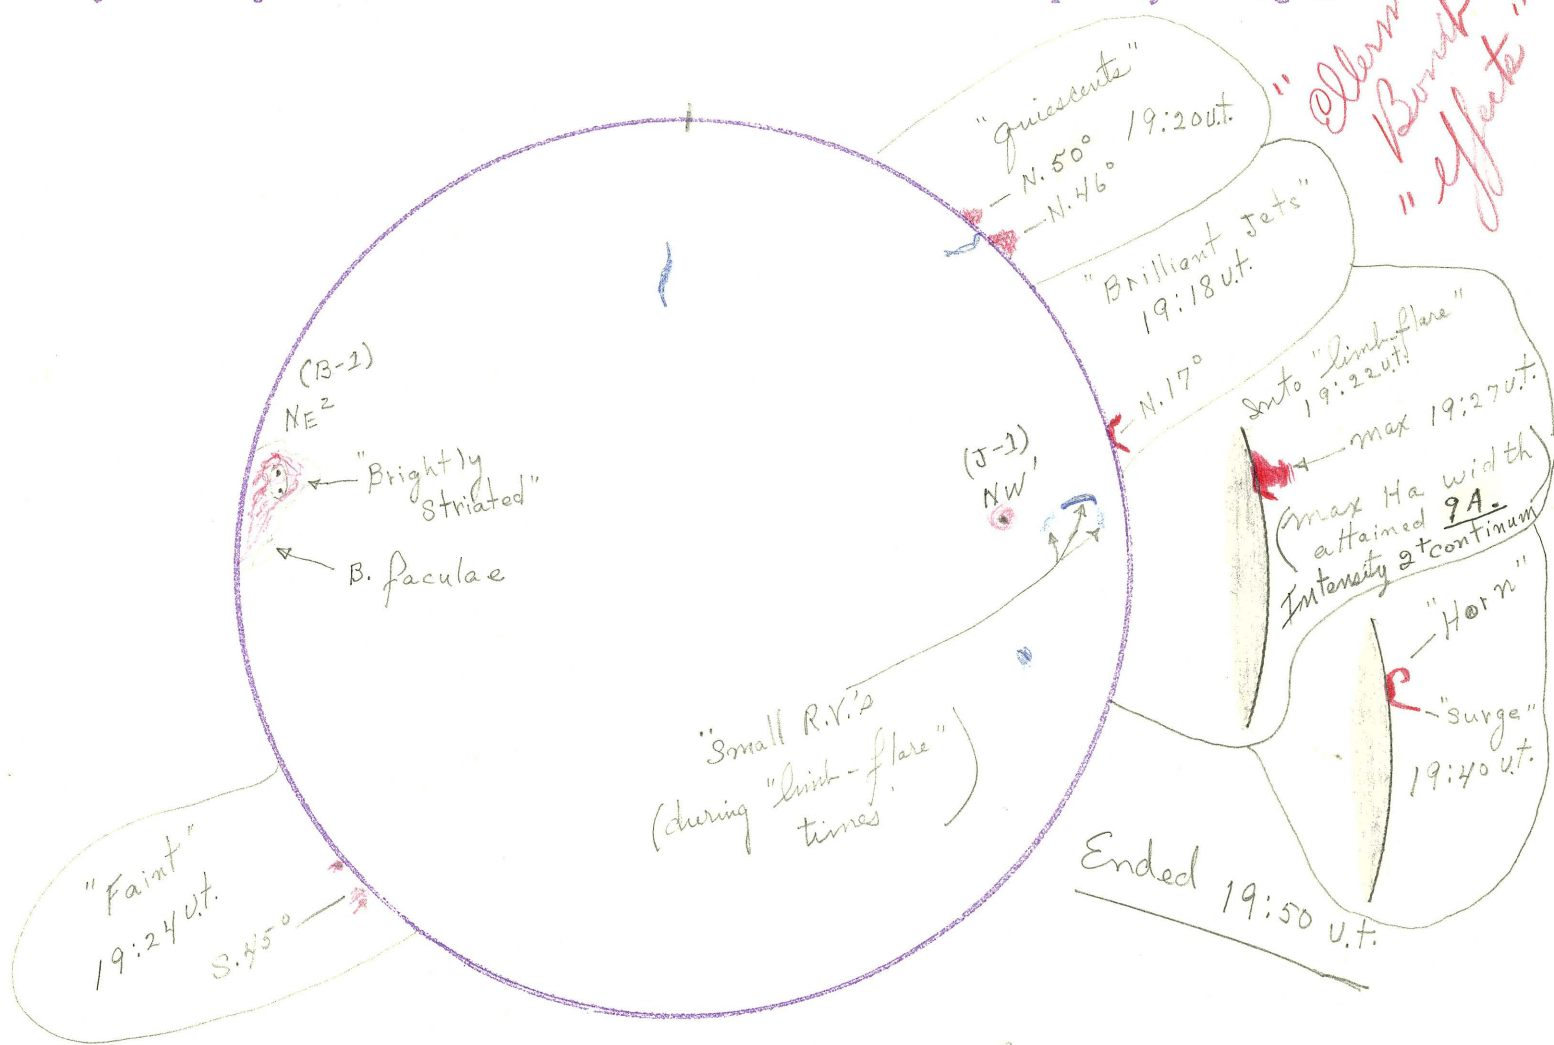 "Quiescents"
19:20 U.t.
N. 50°
N. 46°
"Brilliant Jets"
19:18 U.t.
N. 17°
Into "limb-flare"
19:22 U.t.
max 19:27 U.t.
(max Ha width
attained 9A.)
Intensity 2+ continum
"Horn"
"Surge"
19:40 U.t.
Ended 19:50 U.t.
(B-1)
NE²
"Brightly
Striated"
B. faculae
(J-1)
NW'
"Small R.V.'s
(during "limb-flare"
times)
"Faint"
19:24 U.t.
S. 45°
"effects"